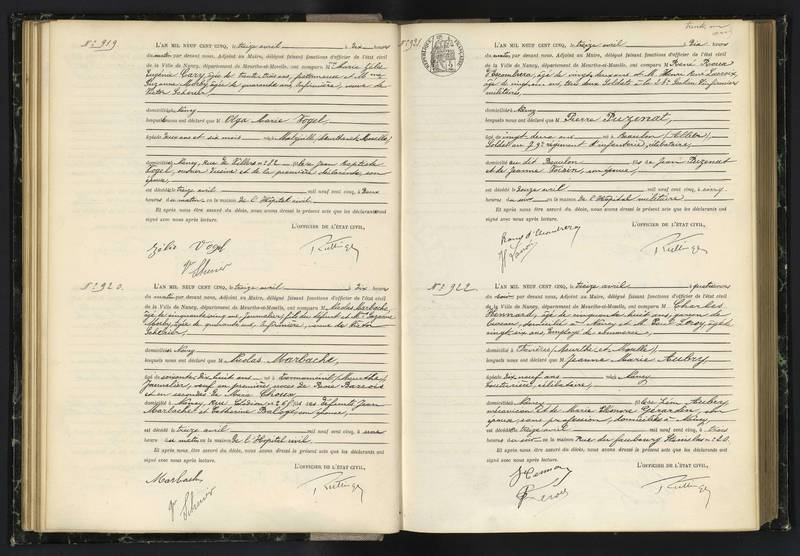 N° 919
L'AN MIL NEUF CENT CINQ, le treize avril à dix heures
du matin par devant nous, Adjoint au Maire, délégué faisant fonctions d'officier de l'état civil
de la Ville de Nancy, département de Meurthe-et-Moselle, ont comparu M Marie Zélie
Eugénie Cary, âgée de trente trois ans, et Mme
Suzanne Morby âgée de quarante ans, Infirmière, veuve de
Victor Scherier
domiciliés à Nancy
lesquels nous ont déclaré que M Olga Marie Vogel,
âgée de deux ans et six mois née à (Meurthe et Moselle)
domiciliée à Nancy, Rue de n° 82 fille de Jean Baptiste
Vogel, ouvrier et de la première déclarante, son
épouse,
est décédée le treize avril mil neuf cent cinq, à deux
heures du matin en la maison de l'Hôpital civil.
Et après nous être assuré du décès, nous avons dressé le présent acte que les déclarants ont
signé avec nous après lecture.
L'OFFICIER DE L'ÉTAT CIVIL,
Zélie Vogel
V Scherier
N° 920.
L'AN MIL NEUF CENT CINQ, le treize avril à dix heures
du matin par devant nous, Adjoint au Maire, délégué faisant fonctions d'officier de l'état civil
de la Ville de Nancy, département de Meurthe-et-Moselle, ont comparu M Nicolas Marbache,
âgé de cinquante cinq ans, Journalier, fils du défunt et Mme Suzanne
Morby, âgée de quarante ans, Infirmière, veuve de Victor
Scherier,
domiciliés à Nancy
lesquels nous ont déclaré que M Nicolas Marbache,
âgé de soixante dix huit ans né à (Meurthe)
Journalier, veuf en premières noces de Rose
et en secondes de Marie Choux
domicilié à Nancy, Rue n° 26 fils des défunts Jean
Marbache et Catherine son épouse,
est décédé le treize avril mil neuf cent cinq, à une
heure du matin en la maison de l'Hôpital civil.
Et après nous être assuré du décès, nous avons dressé le présent acte que les déclarants ont
signé avec nous après lecture.
L'OFFICIER DE L'ÉTAT CIVIL,
Marbach
V Scherier
N° 921
RÉPUBLIQUE FRANÇAISE
L'AN MIL NEUF CENT CINQ, le treize avril à dix heures
du matin par devant nous, Adjoint au Maire, délégué faisant fonctions d'officier de l'état civil
de la Ville de Nancy, département de Meurthe-et-Moselle, ont comparu M René
âgé de vingt deux ans et M Henri Lacroix,
âgé de vingt un ans, tous deux Soldats à la 23e Section d'Infirmiers
militaires,
domiciliés à Nancy
lesquels nous ont déclaré que M Pierre Puzenat,
âgé de vingt deux ans né à Beaulon (Allier),
Soldat au 79e régiment d'infanterie, célibataire,
domicilié au dit Beaulon fils de Jean Puzenat
et de Jeanne Voisin, son épouse,
est décédé le douze avril mil neuf cent cinq, à cinq
heures du soir en la maison de l'Hôpital militaire.
Et après nous être assuré du décès, nous avons dressé le présent acte que les déclarants ont
signé avec nous après lecture.
L'OFFICIER DE L'ÉTAT CIVIL,
N° 922
L'AN MIL NEUF CENT CINQ, le treize avril à quatre heures
du soir par devant nous, Adjoint au Maire, délégué faisant fonctions d'officier de l'état civil
de la Ville de Nancy, département de Meurthe-et-Moselle, ont comparu M Charles
Hennard, âgé de cinquante huit ans, garçon de
domicilié à Nancy et M Paul Leroy, âgé de
vingt six ans, Employé de commerce,
domicilié à (Meurthe et Moselle)
lesquels nous ont déclaré que M Jeanne Marie Aubry
âgée de dix neuf ans née à Nancy
Couturière, célibataire,
domiciliée à Nancy fille de Léon Aubry
menuisier et de Marie Léonore Gérardin, son
épouse, sans profession, domiciliés à Nancy
est décédée le treize avril mil neuf cent cinq, à trois
heures du soir en la maison Rue du faubourg Stanislas n° 20.
Et après nous être assuré du décès, nous avons dressé le présent acte que les déclarants ont
signé avec nous après lecture.
L'OFFICIER DE L'ÉTAT CIVIL,